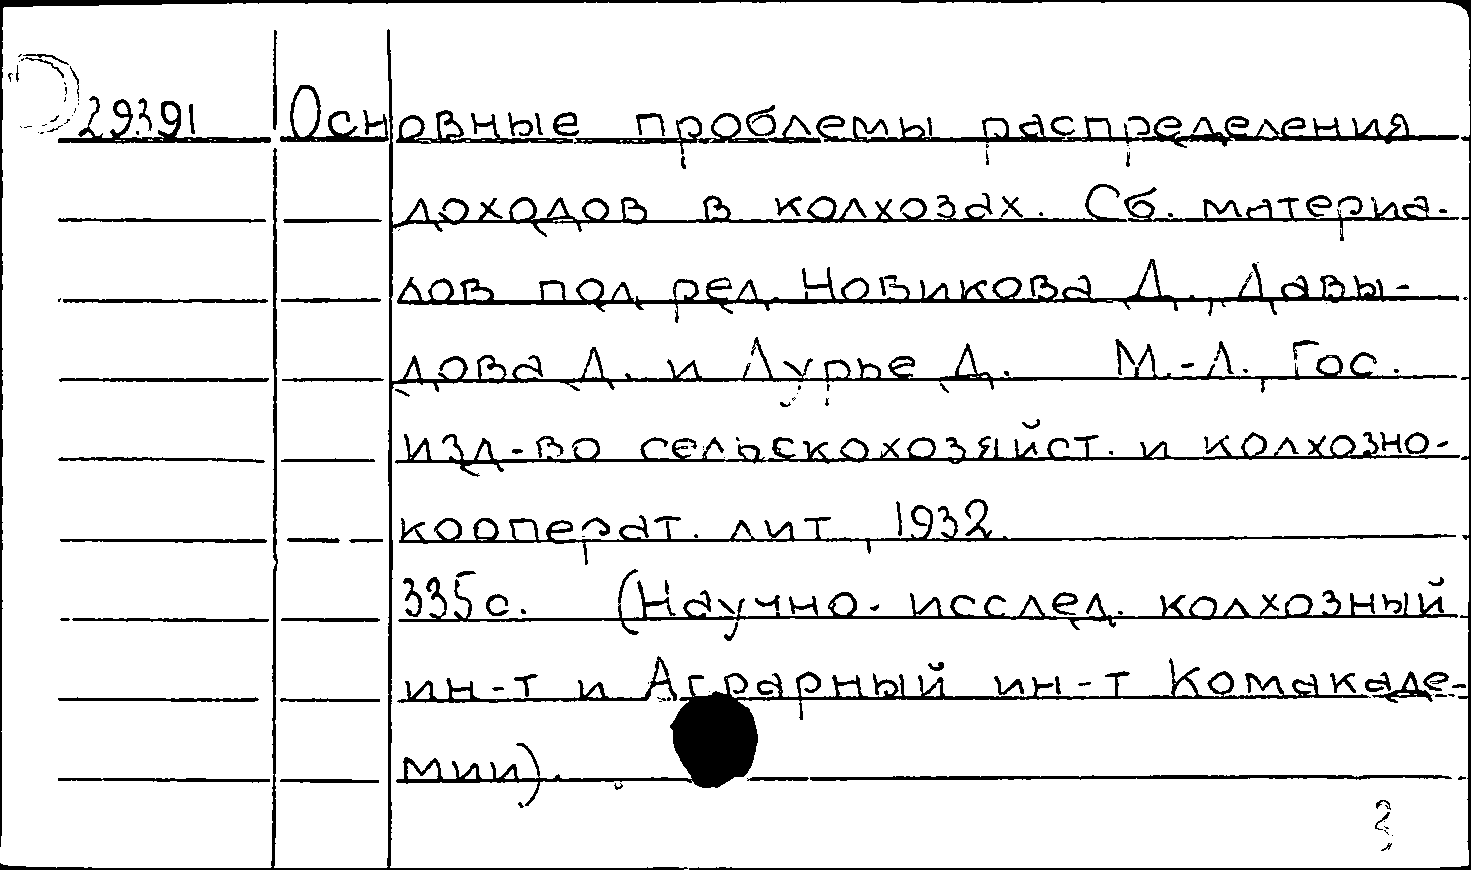 29391 Основные проблемы распределения
доходов в колхозах. Сб. материа-
лов под ред. Новикова Д., Давы-
дова Д. и Лурье Д. М.-Л., Гос.
изд-во сельскохозяйст. и колхозно-
кооперат. лит., 1932.
335с. (Научно-исслед. колхозный
ин-т и Аграрный ин-т Комакаде-
мии).